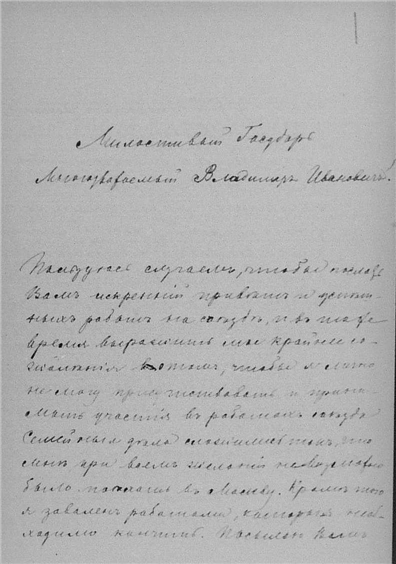 Милостивый Государь
Многоуважаемый Владимиръ Ивановичъ!
Пользуюсь случаемъ, чтобы послать
Вамъ искренній привѣтъ и
работъ на съѣздѣ, и въ тоже
время выразить мое крайнее со-
жалѣніе въ томъ, чтобы я лично
не могу присутствовать и прини-
мать участія въ работахъ съѣзда
Семейныя дѣла сложились такъ, что
мнѣ при всемъ желаніи невозможно
было поѣхать въ Москву. Кромѣ того
я заваленъ работами, которыя необ-
ходимо кончить. Посылаю Вамъ